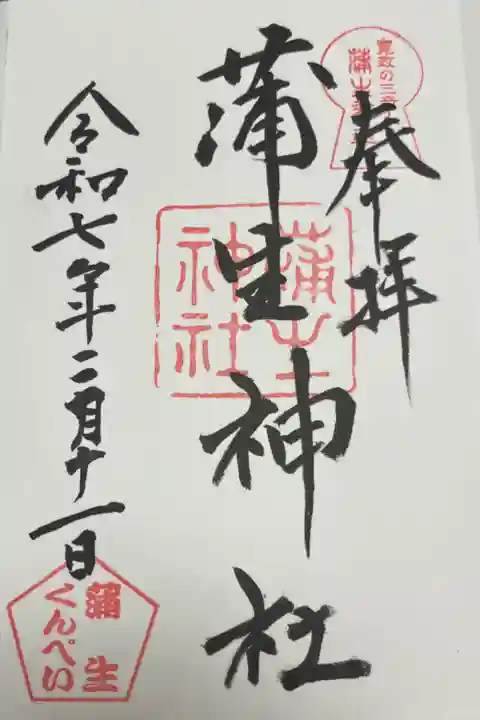 奉拝
寛政の三奇
蒲生神社
蒲生
神社
令和七年二月十一日
蒲生
くんぺい